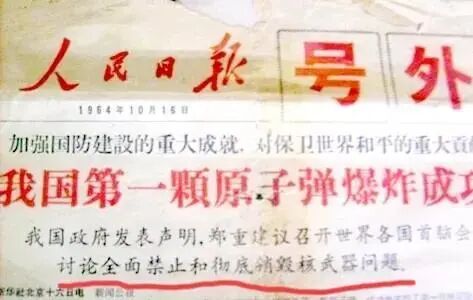 人民日报 号外
1964年10月16日
加强国防建設的重大成就，对保卫世界和平的重大貢
我国第一颗原子弹爆炸成功
我国政府发表声明，郑重建议召开世界各国首脑会
讨论全面禁止和彻底销毁核武器问题。
新华社北京十六日电 新闻公报